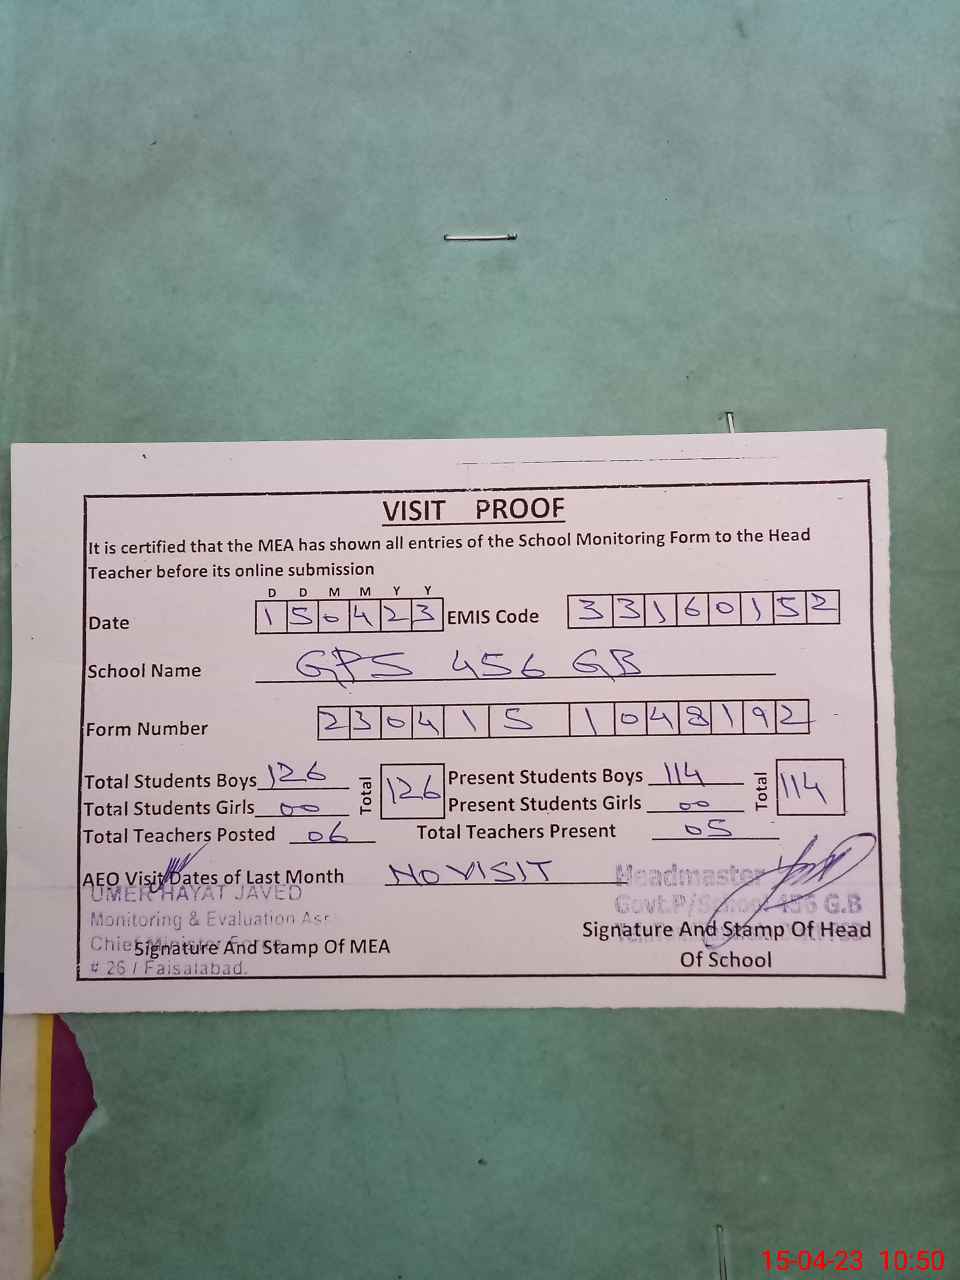 VISIT PROOF
It is certified that the MEA has shown all entries of the School Monitoring Form to the Head
Teacher before its online submission
D D M M Y Y
Date 150423 EMIS Code 33160152
School Name GPS 456 GB
Form Number 230415 1048192
Total Students Boys 126 Total 126 Present Students Boys 114 Total 114
Total Students Girls 00 Present Students Girls 00
Total Teachers Posted 06 Total Teachers Present 05
AEO Visit Dates of Last Month NO VISIT
UMER HAYAT JAVED
Monitoring & Evaluation Ass
Chief Minister
# 26 / Faisalabad.
Signature And Stamp Of MEA
Headmaster
Govt.P/School 456 G.B
Signature And Stamp Of Head
Of School
15-04-23 10:50